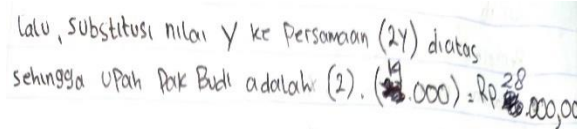 lalu, substitusi nilai y ke Persamaan (2y) diatas
sehingga upah Pak Budi adalah (2). (14.000) = Rp 28.000,00